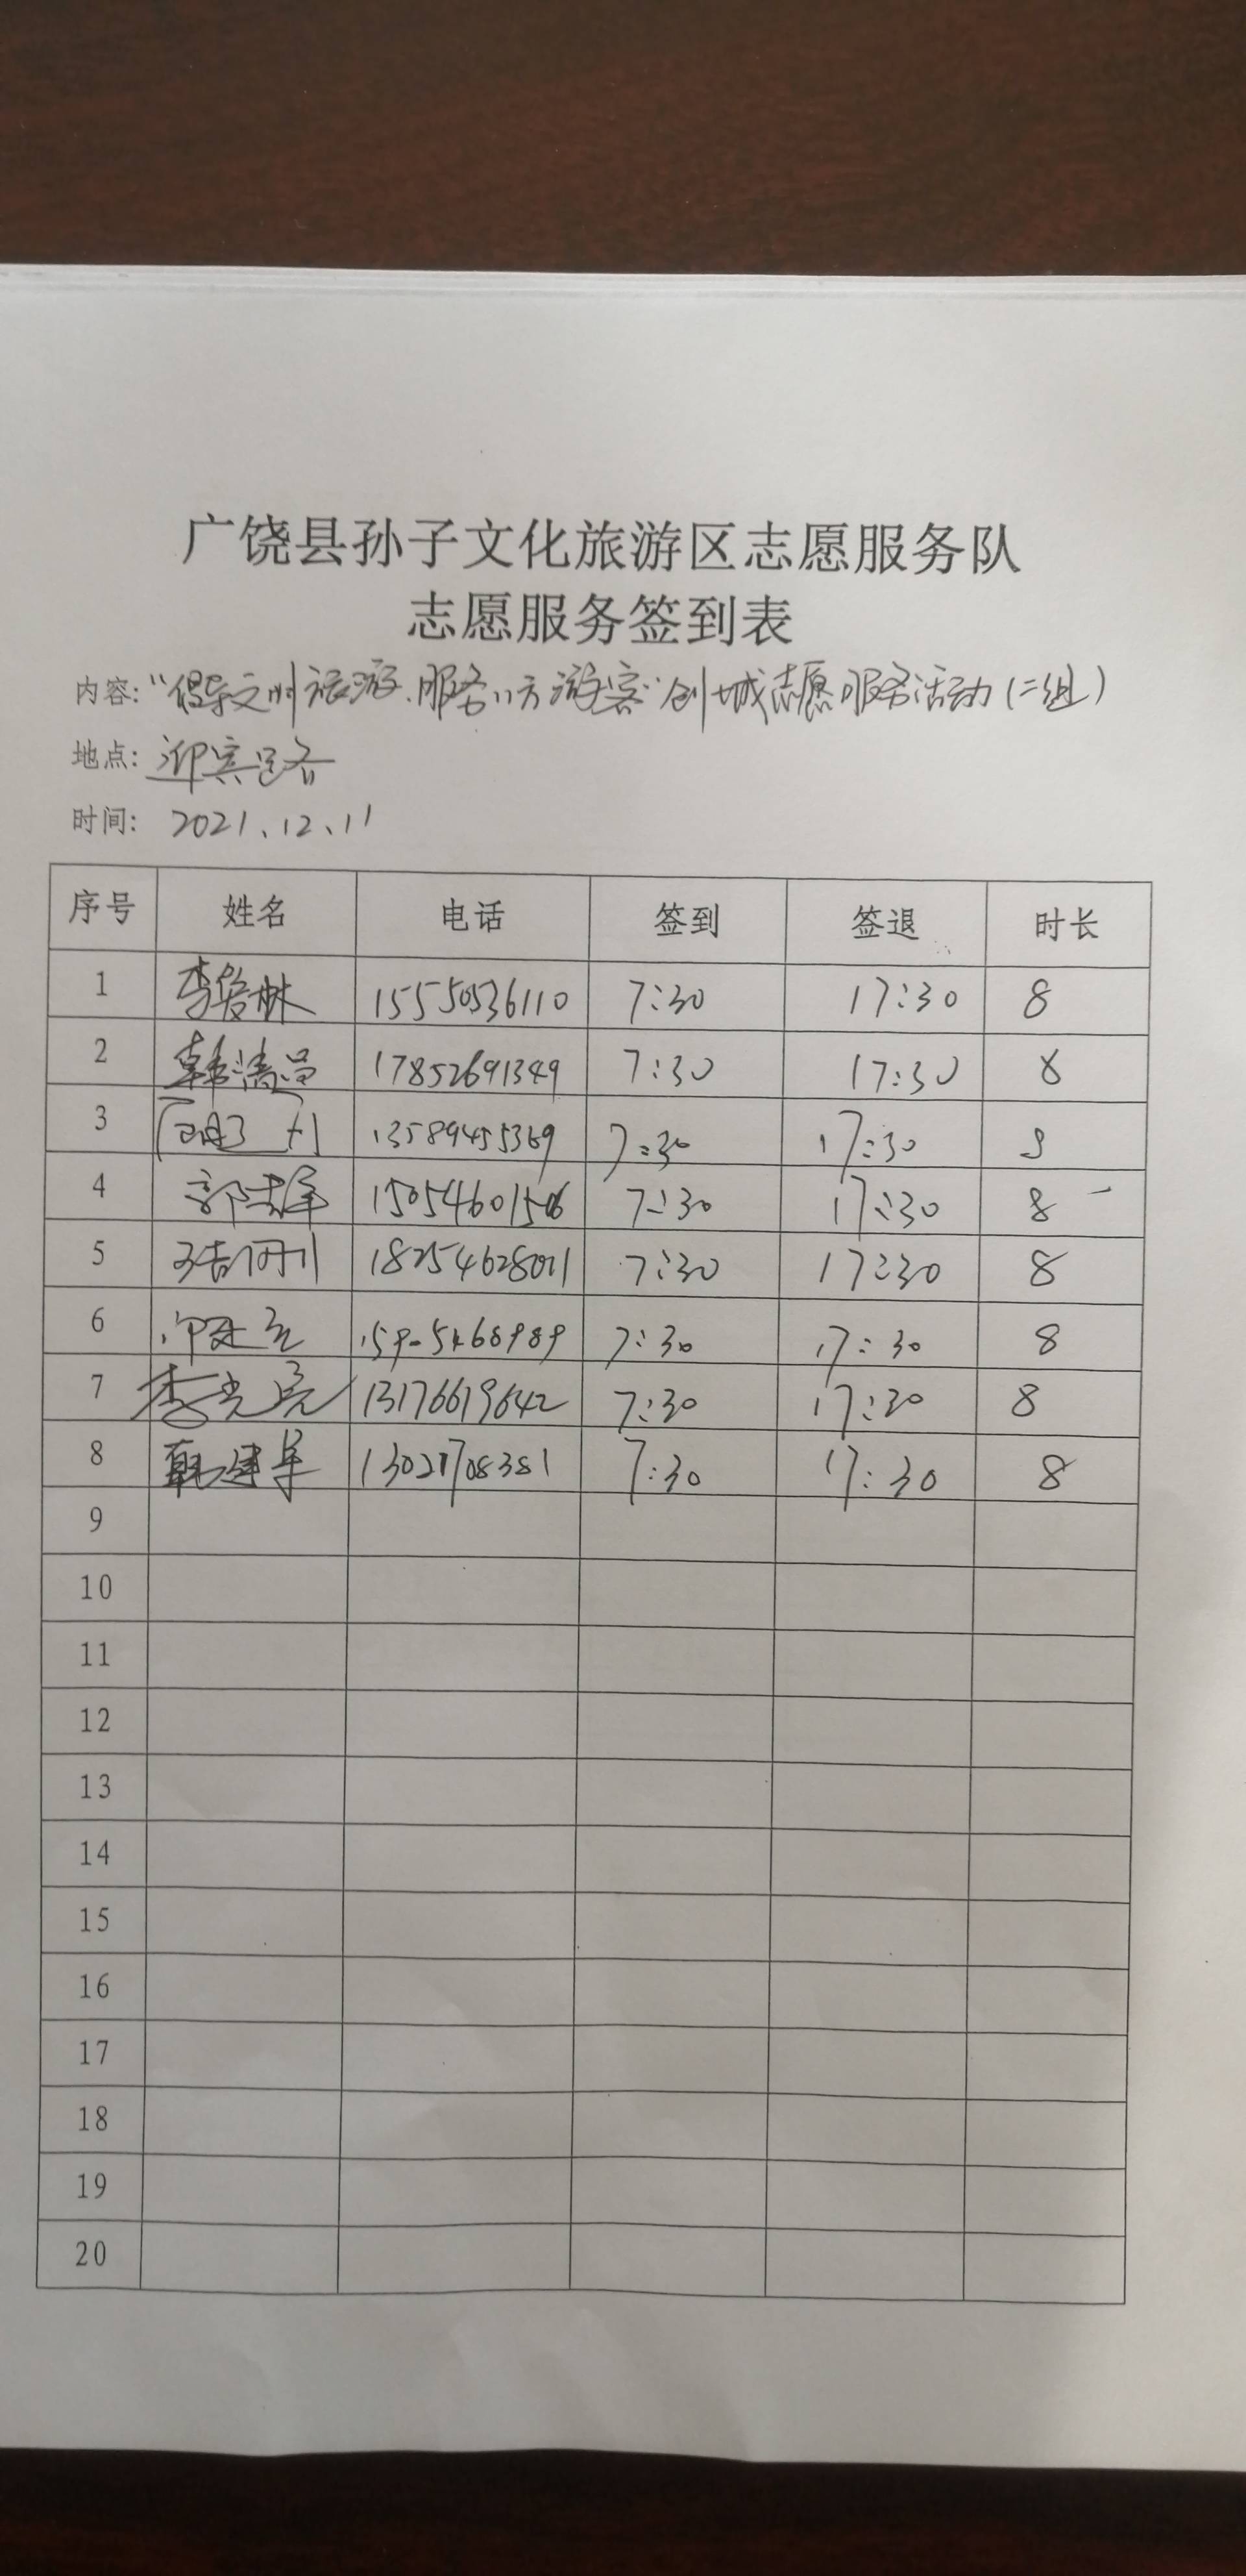 广饶县孙子文化旅游区志愿服务队
志愿服务签到表
内容:“倡导文明旅游.服务八方游客”创城志愿服务活动(二组)
地点: 迎宾路
时间: 2021、12、11
序号 姓名 电话 签到 签退 时长
1 李俊林 15550536110 7:30 17:30 8
2 17852691349 7:30 17:30 8
3 13589455369 7:30 17:30 8
4 7:30 17:30 8
5 18254628011 7:30 17:30 8
6 7:30 17:30 8
7 李光亮 13176619642 7:30 17:30 8
8 韩建军 13021708381 7:30 17:30 8
9
10
11
12
13
14
15
16
17
18
19
20